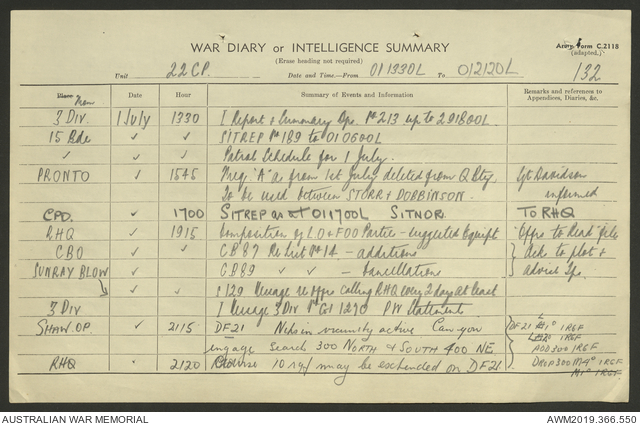 WAR DIARY or INTELLIGENCE SUMMARY
(Erase heading not required)
Army Form C.2118
(adapted.)
132
Unit 22 CP. Date and Time.—From 011330L To 012120L
Place From
Date
Hour
Summary of Events and Information
Remarks and references to Appendices, Diaries, &c.
3 Div. 1 July 1330 I Report & Summary Ops. No 213 up to 291800L
15 Bde ✓ ✓ SITREP No 189 to 010600L
✓ ✓ ✓ Patrol Schedule for 1 July.
PRONTO ✓ 1545 Freq 'A' as from 1st July deleted from Q Bty Sgt Davidson
To be used between STORR & DOBBINSON. informed
CPO. ✓ 1700 SITREP as at 011700L SITNOR TO RHQ
RHQ ✓ 1915 Composition of LO & FOO Parties — suggested Equipt
CBO ✓ ✓ CB 87 No 14 — additions Ack to plot &
SUNRAY BLOW ✓ ✓ CB89 ✓ ✓ — Cancellations advise
✓ ✓ S 129 Message re Offrs calling RHQ every 2 days at least
3 Div I Message 3 Div No GI 1290 PW Statements
SHAW. OP. ✓ 2115 DF21 Nips in vicinity active Can you DF 21 1 REF
engage Search 300 NORTH & SOUTH 400 NE ADD 300 1 REF
RHQ 2120 10 rgf may be expended on DF21. DROP 300 1 REF
AUSTRALIAN WAR MEMORIAL
AWM2019.366.550